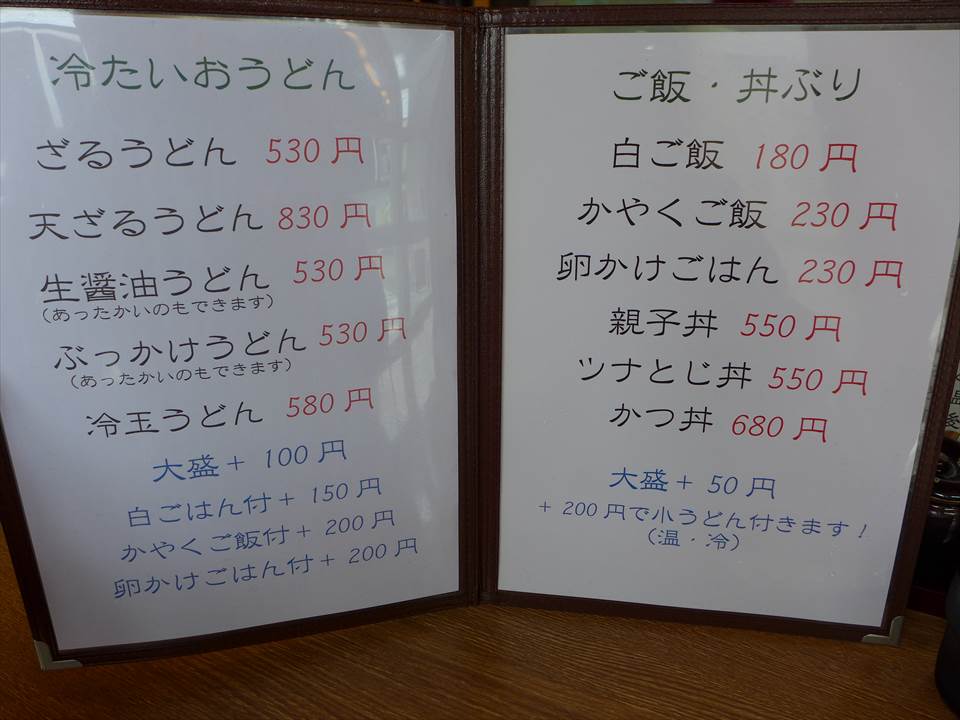 冷たいおうどん
ざるうどん 530円
天ざるうどん 830円
生醤油うどん 530円
(あったかいのもできます)
ぶっかけうどん 530円
(あったかいのもできます)
冷玉うどん 580円
大盛+ 100円
白ごはん付+ 150円
かやくご飯付+ 200円
卵かけごはん付+ 200円
ご飯・丼ぶり
白ご飯 180円
かやくご飯 230円
卵かけごはん 230円
親子丼 550円
ツナとじ丼 550円
かつ丼 680円
大盛+ 50円
+ 200円で小うどん付きます!
(温・冷)